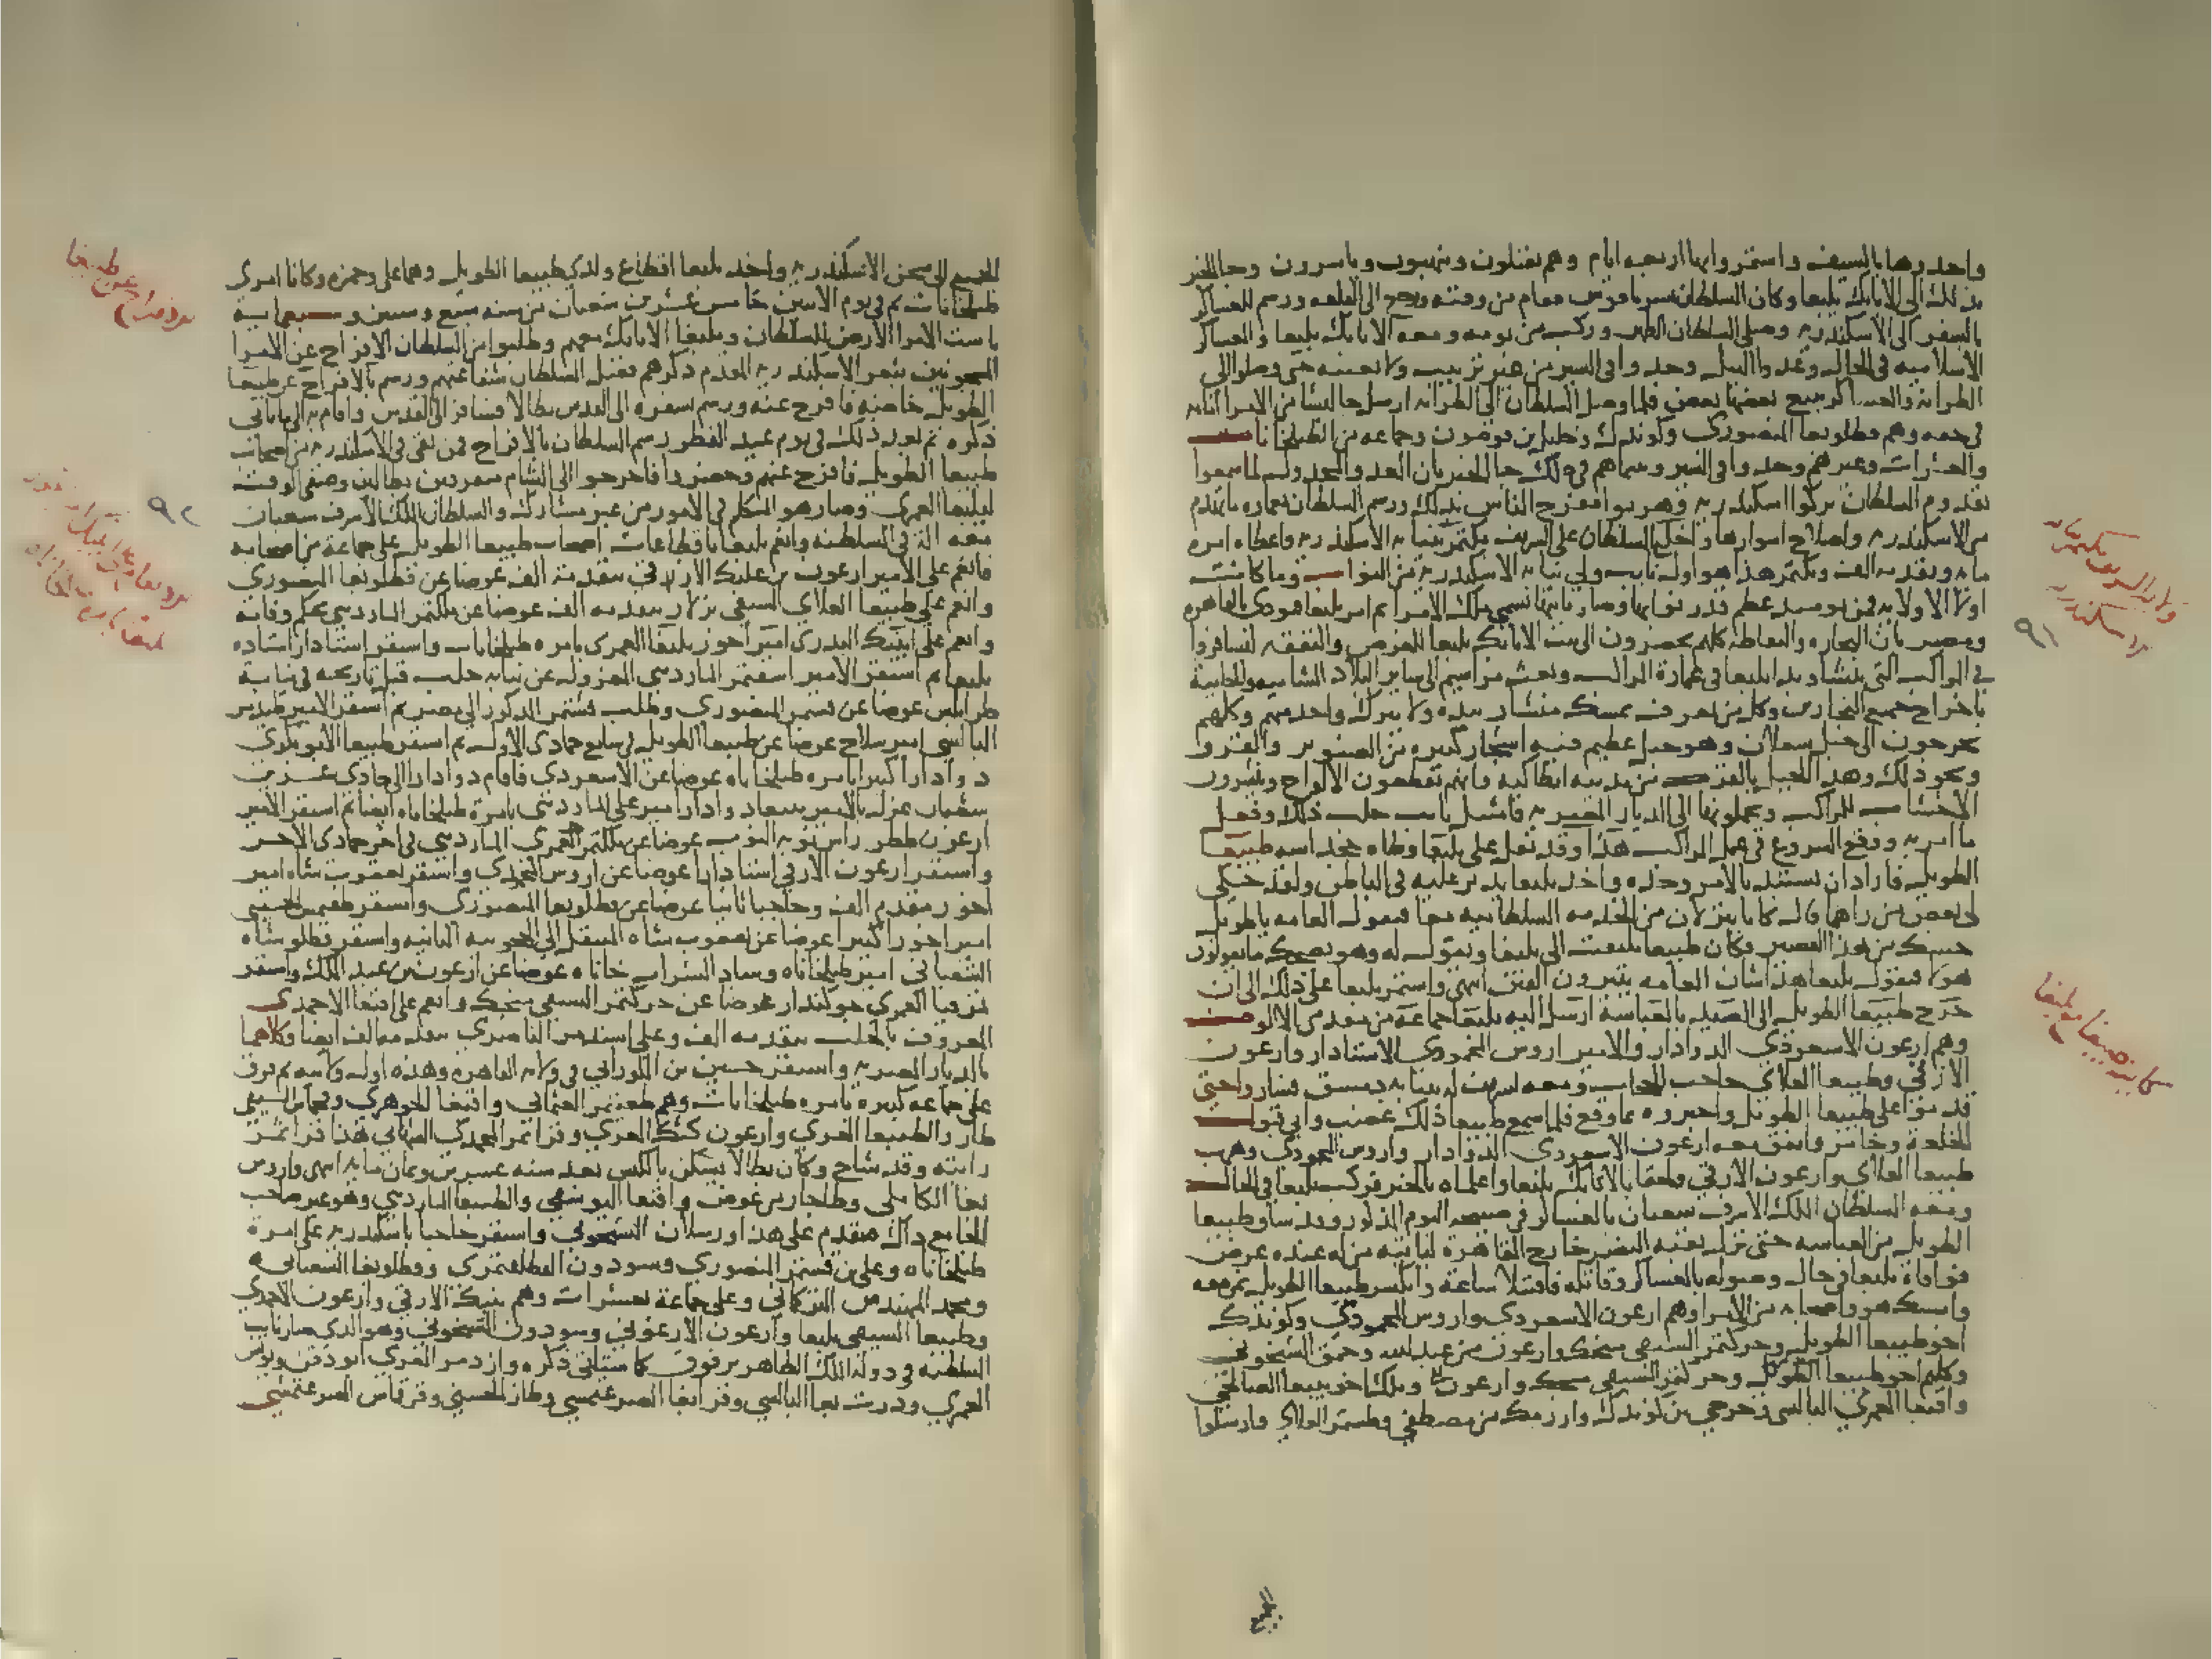 واخدوها بالسيف واستمروا بها اربعه ايام وهم يقتلون وينهبون وياسرون وجا الخبر
بذلك الى الاتابك يلبغا وكان السلطان بسرياقوس فقام من وقته ورجع الى القلعه ورسم للعساكر
بالسفر الى الاسكندريه وصلى السلطان الظهر وركب من يومه ومعه الاتابك يلبغا والعساكر
الاسلاميه في الحال وعدوا النيل وجدوا في السير من غير ترتيب ولا تعبيه حتى وصلوا الى
الطرانه والعساكر يتبع بعضها بعض فلما وصل السلطان الى الطرانه ارسل جاليشا من الامرا امامه
في خفيه وهم قطلوبغا المنصوري وكوندك وخليل بن قوصون وجماعه من الطبلخانات
والعشرات وغيرهم وجدوا في السير وبينما هم في ذلك جا الخبر بان العدو المخذول لما سمعوا
بقدوم السلطان تركوا اسكندريه وهربوا ففرح الناس بذلك ورسم السلطان بعماره ما تهدم
من الاسكندريه واصلاح اسوارها واخلع السلطان على الشريف بكتمر بنيابه الاسكندريه واعطاه امره
مايه وتقدمه الف وبكتمر هذا هو اول نايب ولي نيابه الاسكندريه من النواب وما كانت
اولا الا ولايه فمن يوميذ عظم قدر نوابها وصار نايبها يسمى ملك الامرا ثم امر يلبغا فنودي بالقاهره
ومصر بان البحاره والنفاطه كلهم يحضرون الى بيت الاتابك يلبغا للعرض والنفقه ليسافروا
في المراكب التي ينشاها وبدا يلبغا في عمارة المراكب وبعث مراسيم الى ساير البلاد الشاميه والحلبية
باخراج جميع النجارين وكل من يعرف يمسك منشار بيده ولا يترك واحد منهم وكلهم
يخرجون الى جبل شعلان وهو جبل عظيم فيه اشجار كثيره من الصنوبر والقرو
ونحو ذلك وهذا الجبل بالقرب من مدينه انطاكيه وانهم يقطعون الالواح وينشرون
الاخشاب للمراكب ويحملونها الى الديار المصريه فامتثل نايب حلب ذلك وفعل
ما امر به ووقع الشروع في عمل المراكب هذا وقد ثقل على يلبغا وطاه خجداشه طيبغا
الطويل فاراد ان يستبد بالامر وحده واخذ يلبغا يدبر عليه في الباطن ولقد حكى
لي بعض من راهما قال كانا ينزلان من الخدمه السلطانيه معا فتقول العامه يا طويل
حسبك من هذا القصير فكان طيبغا يلتفت الى يلبغا ويقول له وهو يضحك ما يقولون
هولا فيقول يلبغا هذا شان العامه يثيرون الفتن انتهى واستمر يلبغا على ذلك الى ان
خرج طيبغا الطويل الى الصيد بالعباسة ارسل اليه يلبغا جماعه من مقدمي الالوف
وهم ارغون الاسعردي الدوادار والامير اروس المحمودي الاستادار وارغون
الازقي وطيبغا العلاي حاجب الحجاب ومعه تشريف له بنيابه دمشق فساروا حتى
قدموا على طيبغا الطويل واخبروه بما وقع فلما سمع طيبغا ذلك غضب وابى قبول
الخلعة وخامر واتفق معه ارغون الاسعردي الدوادار واروس المحمودي وهرب
طيبغا العلاي وارغون الازقي ولحقا بالاتابك يلبغا واعلماه بالخبر فركب يلبغا في الحال
ومعه السلطان الملك الاشرف شعبان بالعساكر في صبيحه اليوم المذكور وقد ساق طيبغا
الطويل من العباسه حتى نزل بقبه النصر خارج القاهرة لياتيه من له عنده غرض
فوافاه يلبغا في حال وصوله بالعساكر وقاتله فاقتتلا ساعة وانكسر طيبغا الطويل بمن معه
وامسك هو واصحابه من الامرا وهم ارغون الاسعردي واروس المحمودي وكوندك
اخو طيبغا الطويل وجركتمر السيفي منجك وارغون من عبد الله وجمق الشيخوني
وكليم اخو طيبغا الطويل وجركتمر السيفي منجك وارغون وتلك اخو بيبغا الصالحي
واقبغا العمري البالسي وجرجي بن كوندك وارزمك من مصطفى وطشتمر العلاي وارسلوا
ولايه الشريف بكتمر نيابه
الاسكندريه
٩١
كاينه طيبغا مع يلبغا
الجميع الى سجن الاسكندريه واخذ يلبغا اقطاع ولدي طيبغا الطويل وهما علي وحمزه وكانا اميري
طبلخانات ثم في يوم الاثنين خامس عشرين شعبان من سنه سبع وستين وسبعماية
باست الامرا الارض للسلطان ويلبغا الاتابك معهم وطلبوا من السلطان الافراج عن الامرا
المسجونين بثغر الاسكندريه المقدم ذكرهم فقبل السلطان شفاعتهم ورسم بالافراج عن طيبغا
الطويل خاصه فافرج عنه ورسم بسفره الى القدس بطالا فسافر الى القدس واقام به الى ما ياتي
ذكره ثم بعد ذلك في يوم عيد الفطر رسم السلطان بالافراج عمن بقي في الاسكندريه من اصحاب
طيبغا الطويل فافرج عنهم وحضروا فاخرجوا الى الشام متفرقين بطالين وصفى الوقت
ليلبغا العمري وصار هو المتكلم في الامور من غير مشارك والسلطان الملك الاشرف شعبان
معه آلة في السلطنه وانعم يلبغا باقطاعات اصحاب طيبغا الطويل على جماعة من اصحابه
فانعم على الامير ارغون بن بلبك الازقي بتقدمة الف عوضا عن قطلوبغا المنصوري
وانعم على طيبغا العلاي السيفي بزلار بتقدمه الف عوضا عن ملكتمر المارديني بحكم وفاته
وانعم على اينبك البدري امير اخور يلبغا العمري بامره طبلخانات واستقر استادار استاده
يلبغا ثم استقر الامير اشقتمر المارديني المعزول عن نيابه حلب قبل تاريخه في نيابة
طرابلس عوضا عن قشتمر المنصوري وطلب قشتمر المذكور الى مصر ثم استقر الامير طيدمر
البالسي امير سلاح عوضا عن طيبغا الطويل في سابع جمادي الاول ثم استقر طيبغا الابوبكري
دوادارا كبيرا بامره طبلخاناه عوضا عن الاسعردي فاقام دوادارا الى حادي عشرين
شعبان عزل بالامير بيبغا دوادار امير علي المارديني بامرة طبلخاناه ايضا ثم استقر الامير
ارغون ططر راس نوبه النوب عوضا عن ملكتمر العمري المارديني في اخر جمادى الاخر
واستقر ارغون الازقي استادارا عوضا عن اروس المحمودي واستقر يعقوب شاه امير
اخور مقدم الف وحاجبا ثانيا عوضا عن قطلوبغا المنصوري واستقر طقتمر الحسني
امير اخورا كبيرا عوضا عن يعقوب شاه المنتقل الى الحجوبيه الثانيه واستقر قطلو شاه
الشعباني امير طبلخاناه وشاد الشراب خاناه عوضا عن ارغون من عبد الملك واستقر
تمرقيا العمري جوكندار عوضا عن جركتمر السيفي منجك وانعم على اقبغا الاحمدي
المعروف بالجلب بتقدمه الف وعلى اسندمر الناصري بتقدمه الف ايضا وكلاهما
بالديار المصريه واستقر حسين بن الكوراني في ولايه القاهره وهذه اول ولايته ثم فرق
على جماعه كبيره بامره طبلخانات وهم طغيتمر العثماني واقبغا الجوهري وقجماس السيفي
طاز والطنبغا العزي وارغون كتك العزي وقراتمر المحمدي الشهابي هذا قراتمر
رايته وقد شاخ وكان بطالا يسكن بالكبش بعد سنه عشرين وثمان مايه انتهى واروس
بغا الكاملي وطاجار من عوض واقبغا اليوسفي والطنبغا المارديني وهو غير صاحب
الجامع ذاك متقدم على هذا ورسلان الشيخوني واستقر حاجبا باسكندريه على امرة
طبلخاناه وعلي بن قشتمر المنصوري وسودون القطلقتمري وقطلوبغا الشعباني
ومحمد المهندس التركماني وعلى جماعة بعشرات وهم تنبك الازقي وارغون الاحمدي
وطيبغا السيفي يلبغا وارغون الارغوني وسودون الشيخوني وهو الذي صار نايب
السلطنه في دولة الملك الظاهر برقوق كما سياتي ذكره وازدمر العزي ابو ذقن ويونس
العمري ودرت بغا البالسي وقرابغا الصرغتمشي وطاز الحسني وقرقماس الصرغتمشي
الافراج عن طيبغا
٩٢